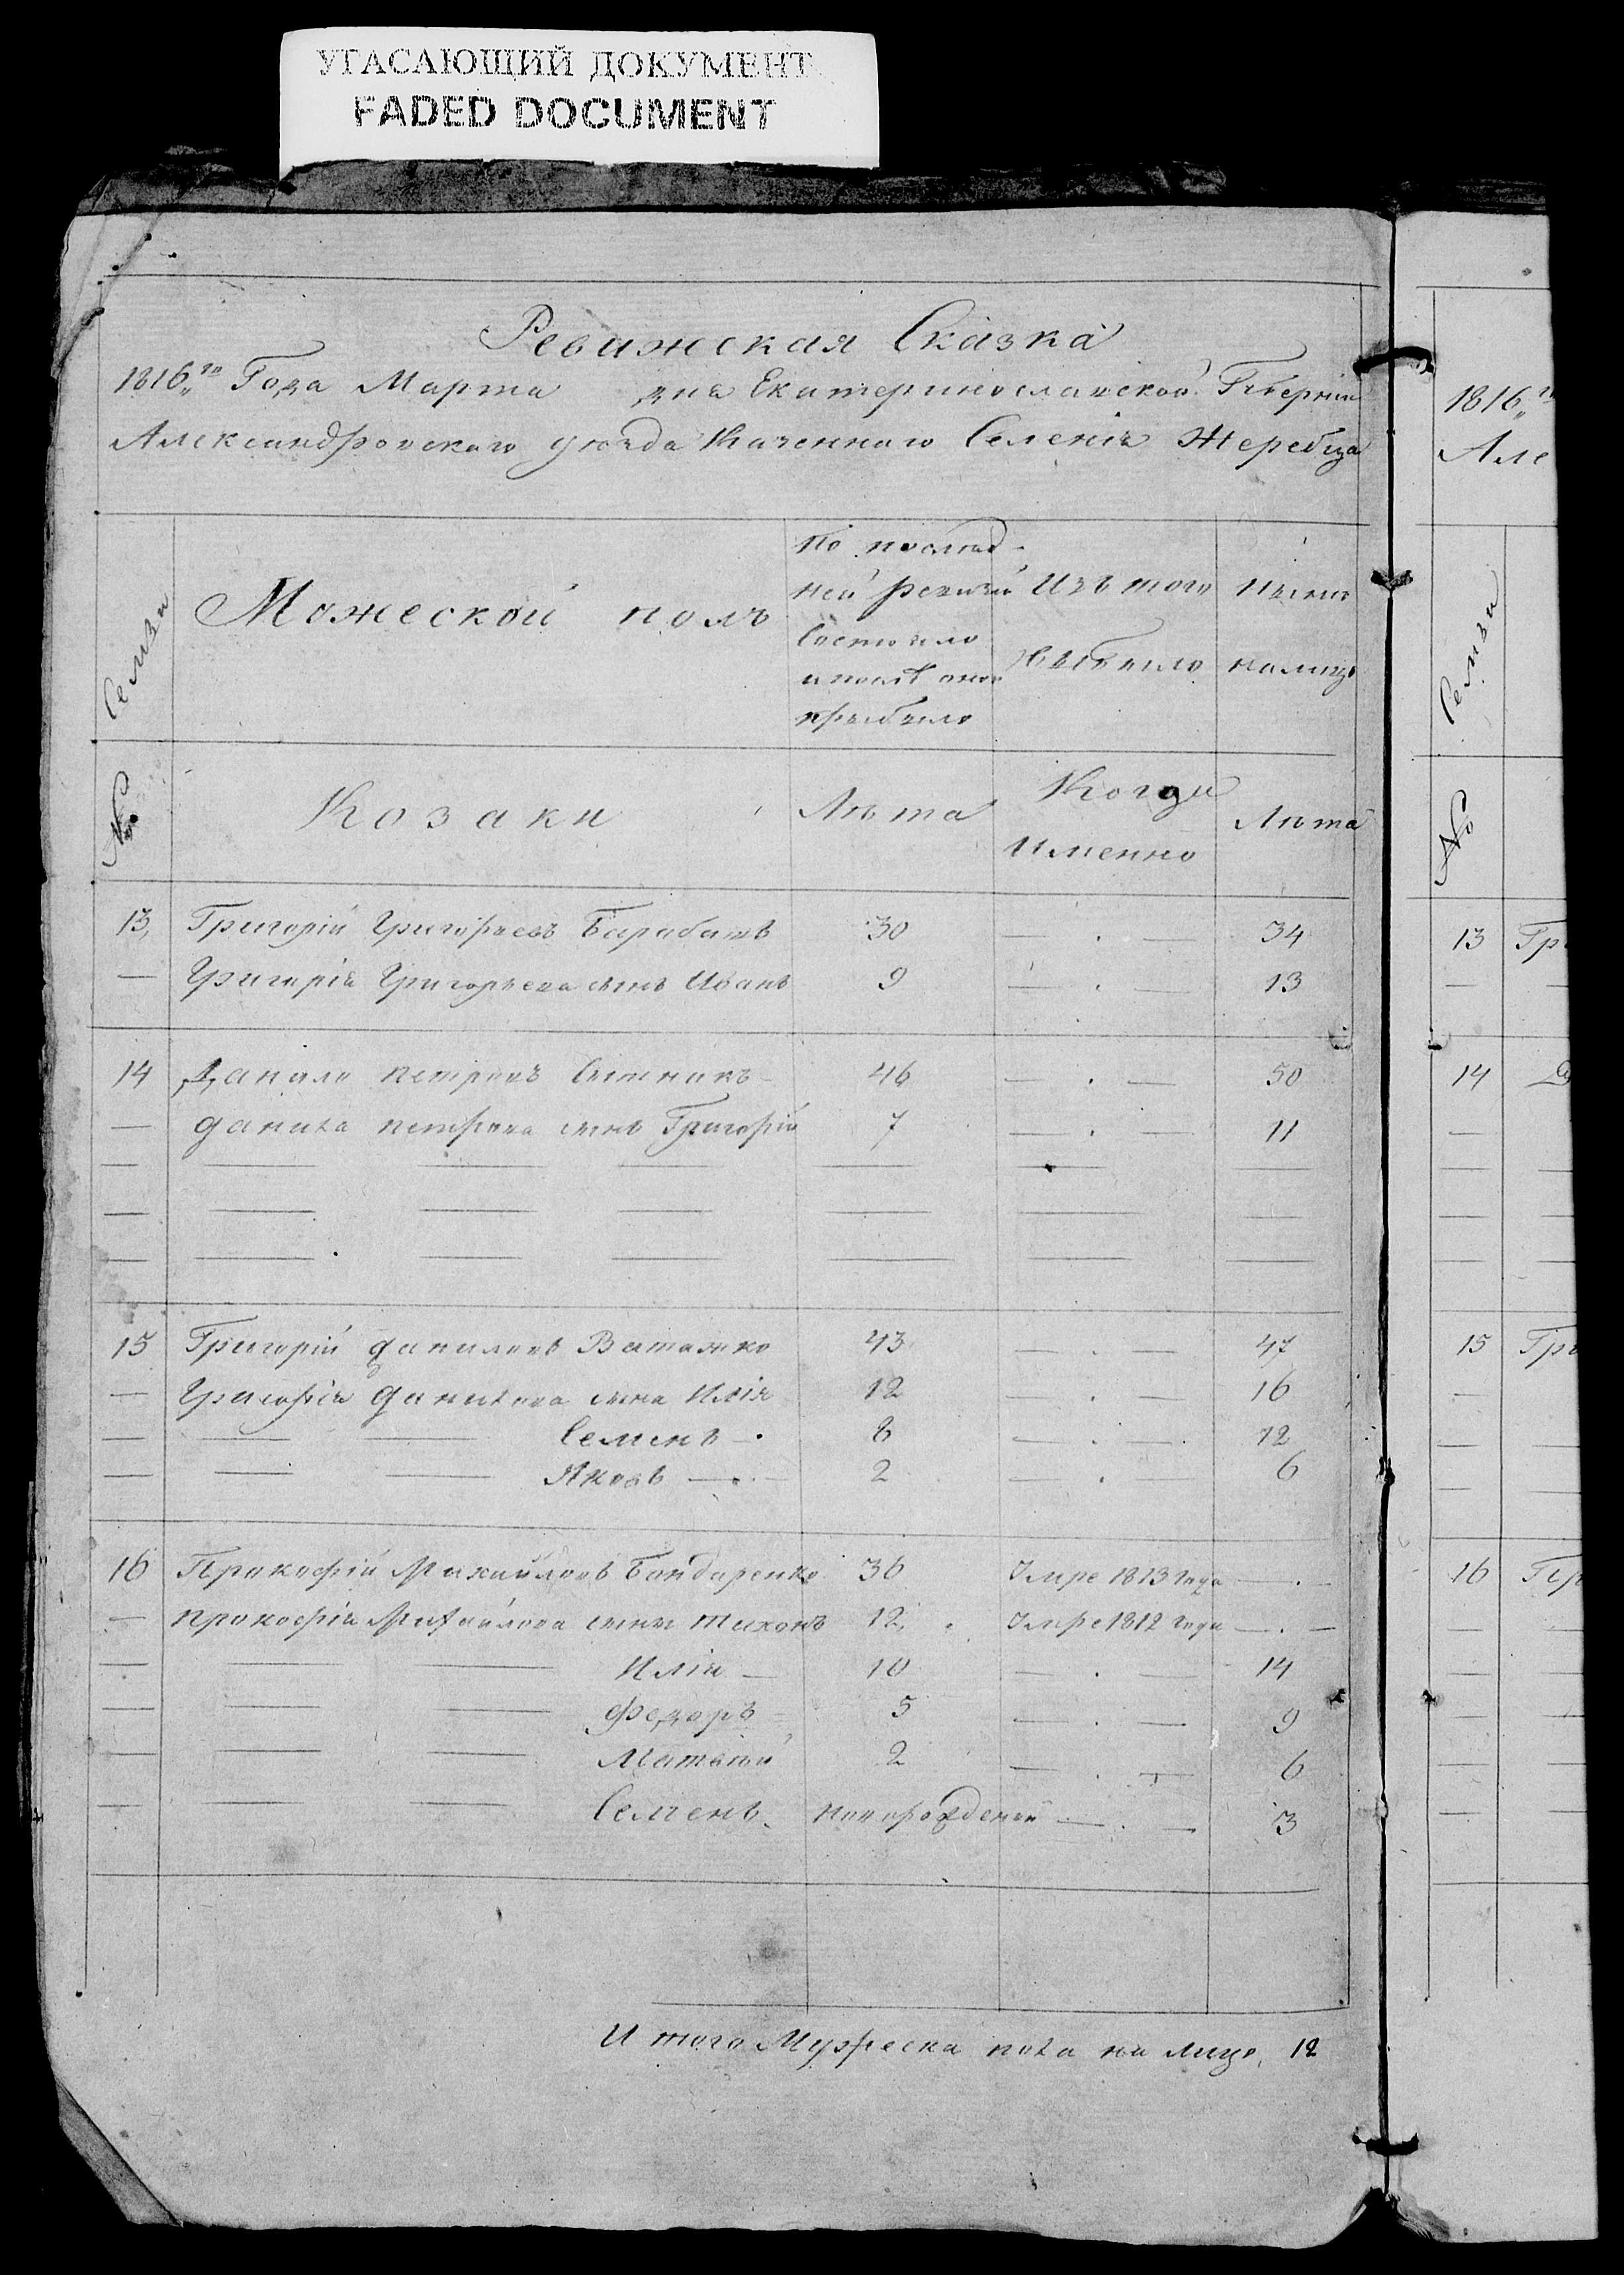 УГАСАЮЩИЙ ДОКУМЕНТ
FADED DOCUMENT
Ревижская Сказка
1816„го Года Марта дня Екатеринославской Губерніи
Александровскаго уезда Казеннаго Селенія Жеребца
Семьи
Можеской полъ
По послед-
ней ревизіи
Состояло
и после оной
прыбыло
Изъ того
выбыло
Ныне
налицо
№
Козаки
Лѣта
Когда
Именно
Лѣта
13, Григорій Григорьевъ Барабашъ 30 — . — 34
— Григорія Григорьева сынъ Иванъ 9 — . — 13
14 Данило петровъ Сытникъ 46 — . — 50
— данила петрова сынъ Григорій 7 — . — 11
15 Григорій даниловъ Ватажко 43 — . — 47
— Григорія данилова сыны Илія 12 — . — 16
— — — Семенъ — . 8 — . — 12
— — — Яковъ — . — 2 — . — 6
16 Прокофій Михайловъ Бондаренко 36 Умре 1813 года — . —
— прокофія Михайлова сыны тихонъ 12, Умре 1812 года — . —
— — — Илія — 10 — . — 14
— — — Федоръ 5 — . — 9
— — — Матвѣй 2 — . — 6
— — — Семенъ новорожденой — . — 3
И того Мужеска пола на лицо, 12
1816„го
Але
Семьи
№
13 Гри
14
15 Гри
16 Пр